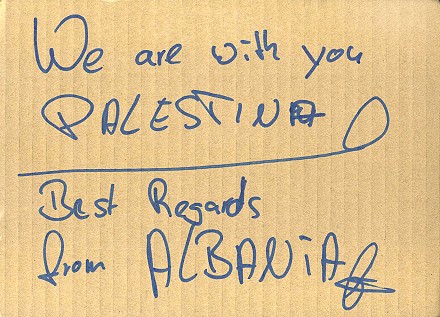 We are with you
PALESTINA
Best Regards
from ALBANiA